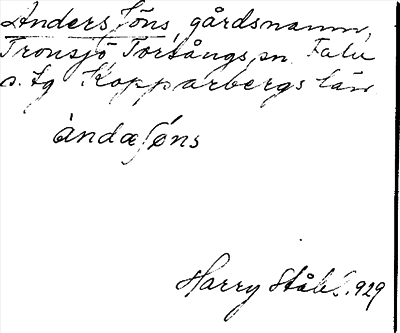 Anders Jöns, gårdsnamn,
Tronsjö Torsångs sn. Falu
s. lg Kopparbergs län
àndæʃöns
Harry Ståhl. 1929